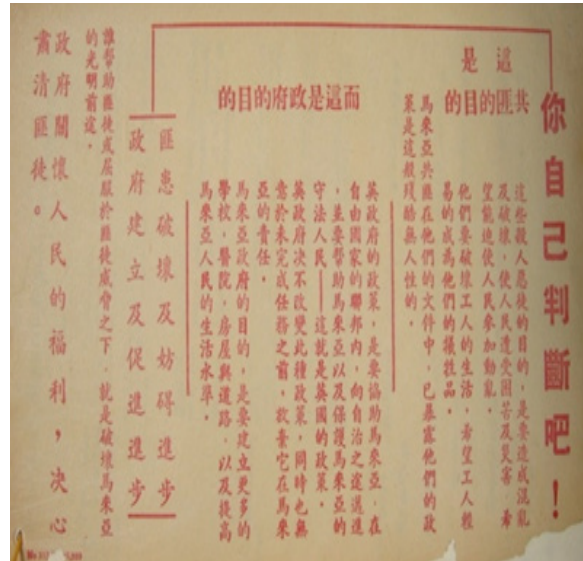 你自己判斷吧！
這是
共匪的目的
這些殺人惡徒的目的，是要造成混亂
及破壞，使人民遭受困苦及災害，希
望能迫使人民參加動亂。
他們要破壞工人的生活，希望工人輕
易的成為他們的犧牲品。
馬來亞共匪在他們的文件中，已暴露他們的政
策是這般殘酷無人性的。
而這是政府的目的
英政府的政策，是要協助馬來亞，在
自由國家的聯邦內，向自治之途邁進
，並要幫助馬來亞以及保護馬來亞的
守法人民——這就是英國的政策。
英政府決不改變此種政策，同時也無
意於未完成任務之前，放棄它在馬來
亞的責任。
馬來亞政府的目的，是要建立更多的
學校，醫院，房屋與道路，以及提高
馬來亞人民的生活水準。
匪患破壞及妨碍進步
政府建立及促進進步
誰幫助匪徒或屈服於匪徒威脅之下，就是破壞馬來亞
的光明前途。
政府關懷人民的福利，決心
肅清匪徒。